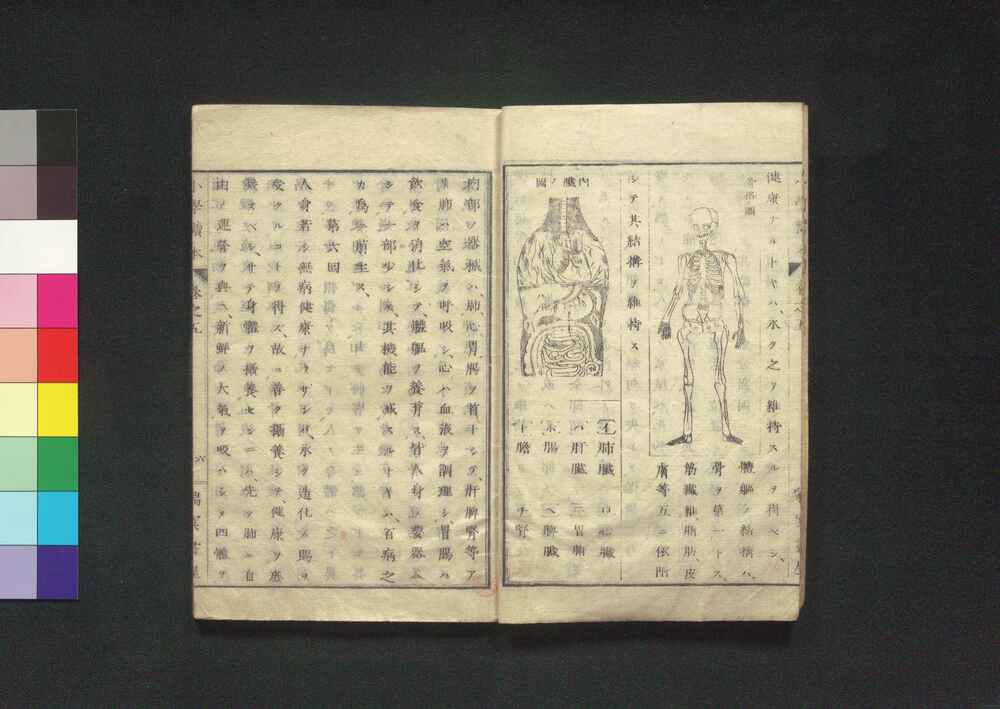 健康ナルトキハ、永ク之ヲ維持スルヲ得ベシ、
骨格ノ圖
體軀ノ結構ハ、
骨ヲ第一トス、
筋纖維脂肪、皮
膚等互ニ依附
シテ其結構ヲ維持ス
内臟ノ圖
イ肺臟 ロ心臟
ハ肝臟 ニ胃腑
ホ腸 ヘ脾臟
ト膽 チ腎
内部ノ器械ハ、肺心胃腸ヲ首トシテ、肝脾腎等ア
リ、肺ハ空氣ヲ呼吸シ、心ハ血液ヲ調理シ、胃腸ハ
飲食ヲ消化シテ、體軀ヲ養育ス、皆人身必要器ニ
シテ、一部少シク其機能ヲ減スルトキハ、百病之
カ爲ニ萌生ス、
第六回
人身若シ無病健康ナラザレバ、永ク造化ノ賜ヲ
受クルコトヲ得ズ、故ニ善ク攝養シテ、健康ヲ應
護スベシ、サテ身體ヲ攝養センニハ、先ヅ肺ニ自
由ノ運營ヲ與ヘ、新鮮ノ大氣ヲ吸ハシメ四體ヲ
小學讀本 卷之五 六